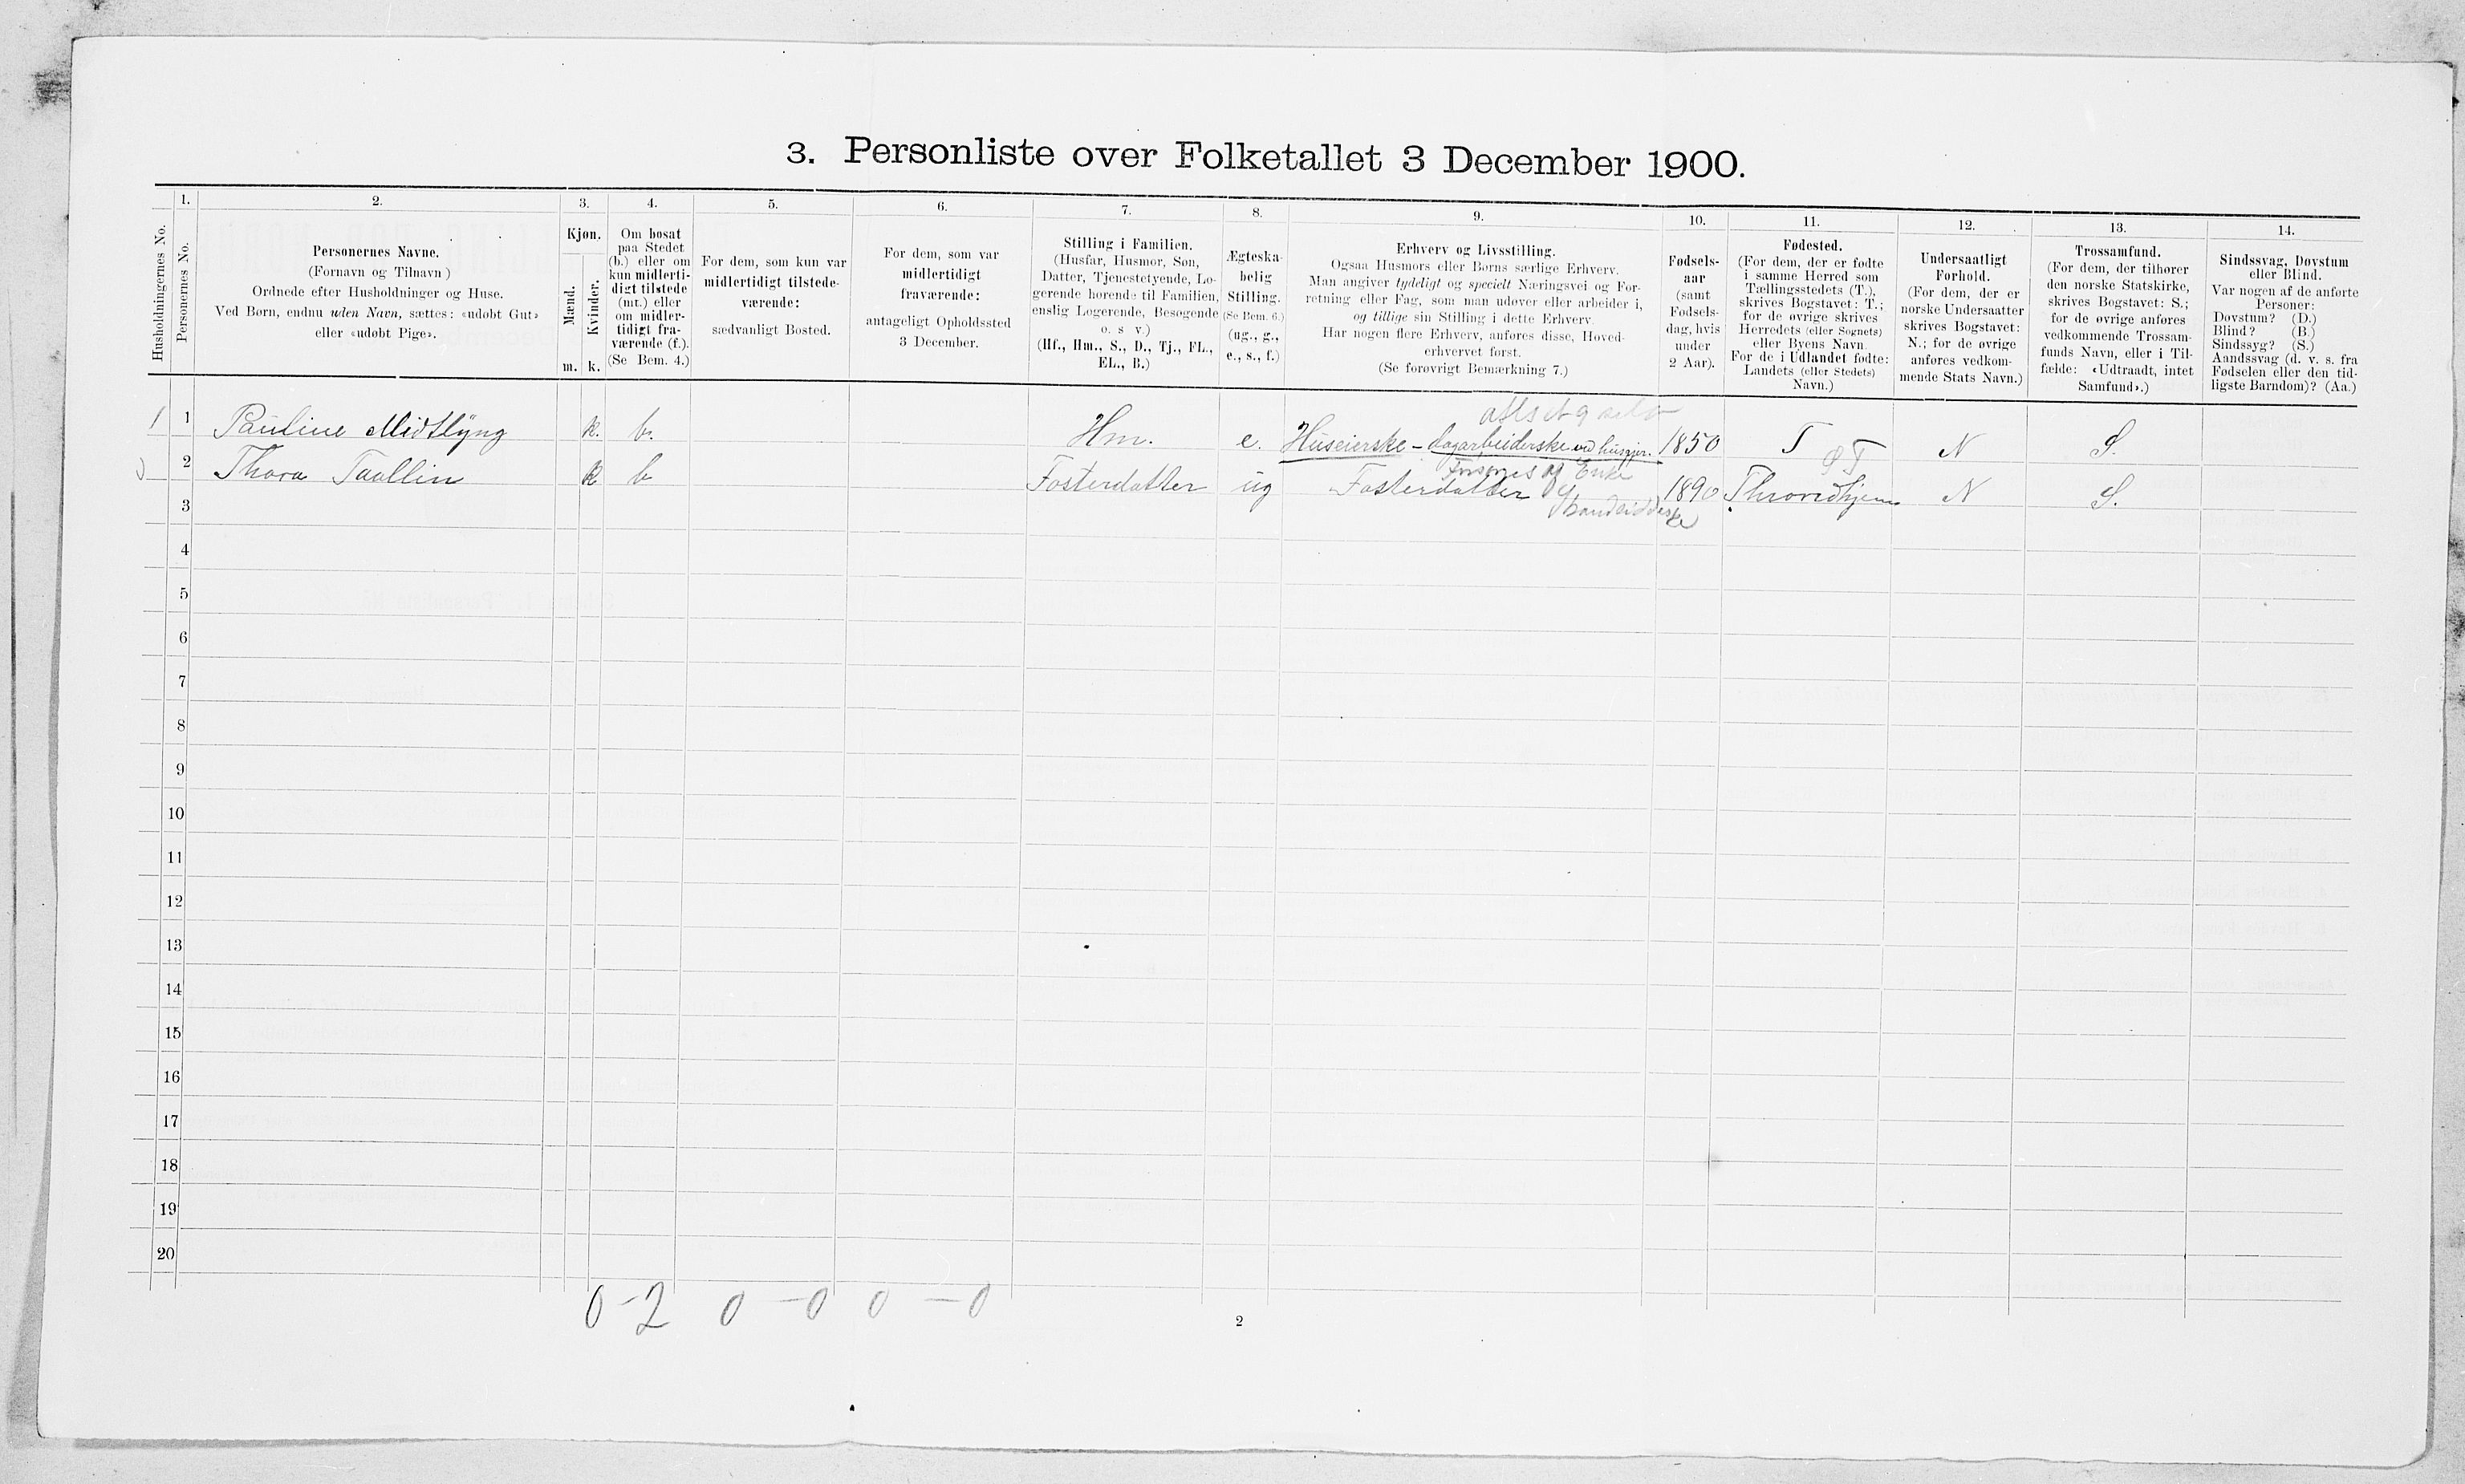 3. Personliste over Folketallet 3 December 1900.
Husholdningernes No.
1.
Personernes No.
2.
Personernes Navne.
(Fornavn og Tilnavn)
Ordnede efter Husholdninger og Huse.
Ved Børn, endnu uden Navn, sættes: «udøbt Gut»
eller «udøbt Pige».
3.
Kjøn.
Mænd.
Kvinder.
m.
k.
4.
Om bosat
paa Stedet
(b.) eller om
kun midlerti-
digt tilstede
(mt.) eller
om midler-
tidigt fra-
værende (f.).
(Se Bem. 4.)
5.
For dem, som kun var
midlertidigt tilstede-
værende:
sædvanligt Bosted.
6.
For dem, som var
midlertidigt
fraværende:
antageligt Opholdssted
3 December.
7.
Stilling i Familien.
(Husfar, Husmor, Søn,
Datter, Tjenestetyende, Lo-
gerende hørende til Familien,
enslig Logerende, Besøgende
o. s v.)
(Hf., Hm., S., D., Tj., FL.,
EL., B.)
8.
Ægteska-
belig
Stilling.
(Se Bem. 6.)
(ug., g.,
e., s., f.)
9.
Erhverv og Livsstilling.
Ogsaa Husmors eller Børns særlige Erhverv.
Man angiver tydeligt og specielt Næringsvei og For-
retning eller Fag, som man udøver eller arbeider i,
og tillige sin Stilling i dette Erhverv.
Har nogen flere Erhverv, anføres disse, Hoved-
erhvervet først.
(Se forøvrigt Bemærkning 7.)
10.
Fødsels-
aar
(samt
Fødsels-
dag, hvis
under
2 Aar).
11.
Fødested.
(For dem, der er fødte
i samme Herred som
Tællingsstedets (T.),
skrives Bogstavet: T.;
for de øvrige skrives
Herredets (eller Sognets)
eller Byens Navn.
For de i Udlandet fødte:
Landets (eller Stedets)
Navn.)
12.
Undersaatligt
Forhold.
(For dem, der er
norske Undersaatter
skrives Bogstavet:
N.; for de øvrige
anføres vedkom-
mende Stats Navn.)
13.
Trossamfund.
(For dem, der tilhører
den norske Statskirke,
skrives Bogstavet: S.;
for de øvrige anføres
vedkommende Trossam-
funds Navn, eller i Til-
fælde: «Udtraadt, intet
Samfund».)
14.
Sindssvag, Døvstum
eller Blind.
Var nogen af de anførte
Personer:
Døvstum? (D.)
Blind? (B.)
Sindssyg? (S.)
Aandssvag (d. v. s. fra
Fødselen eller den tid-
ligste Barndom)? (Aa.)
1 1 Pauline Midtlyng k. b. Hm. e. Huseierske - dagarbeiderske ved husgjer. 1850 T N S.
2 Thora Taallin k b Fosterdatter ug Fosterdatter 1890 Throndhjem N S.
Forsørges af Enke
3
4
5
6
7
8
9
10
11
12
13
14
15
16
17
18
19
20
0-2 0-0 0-0
2